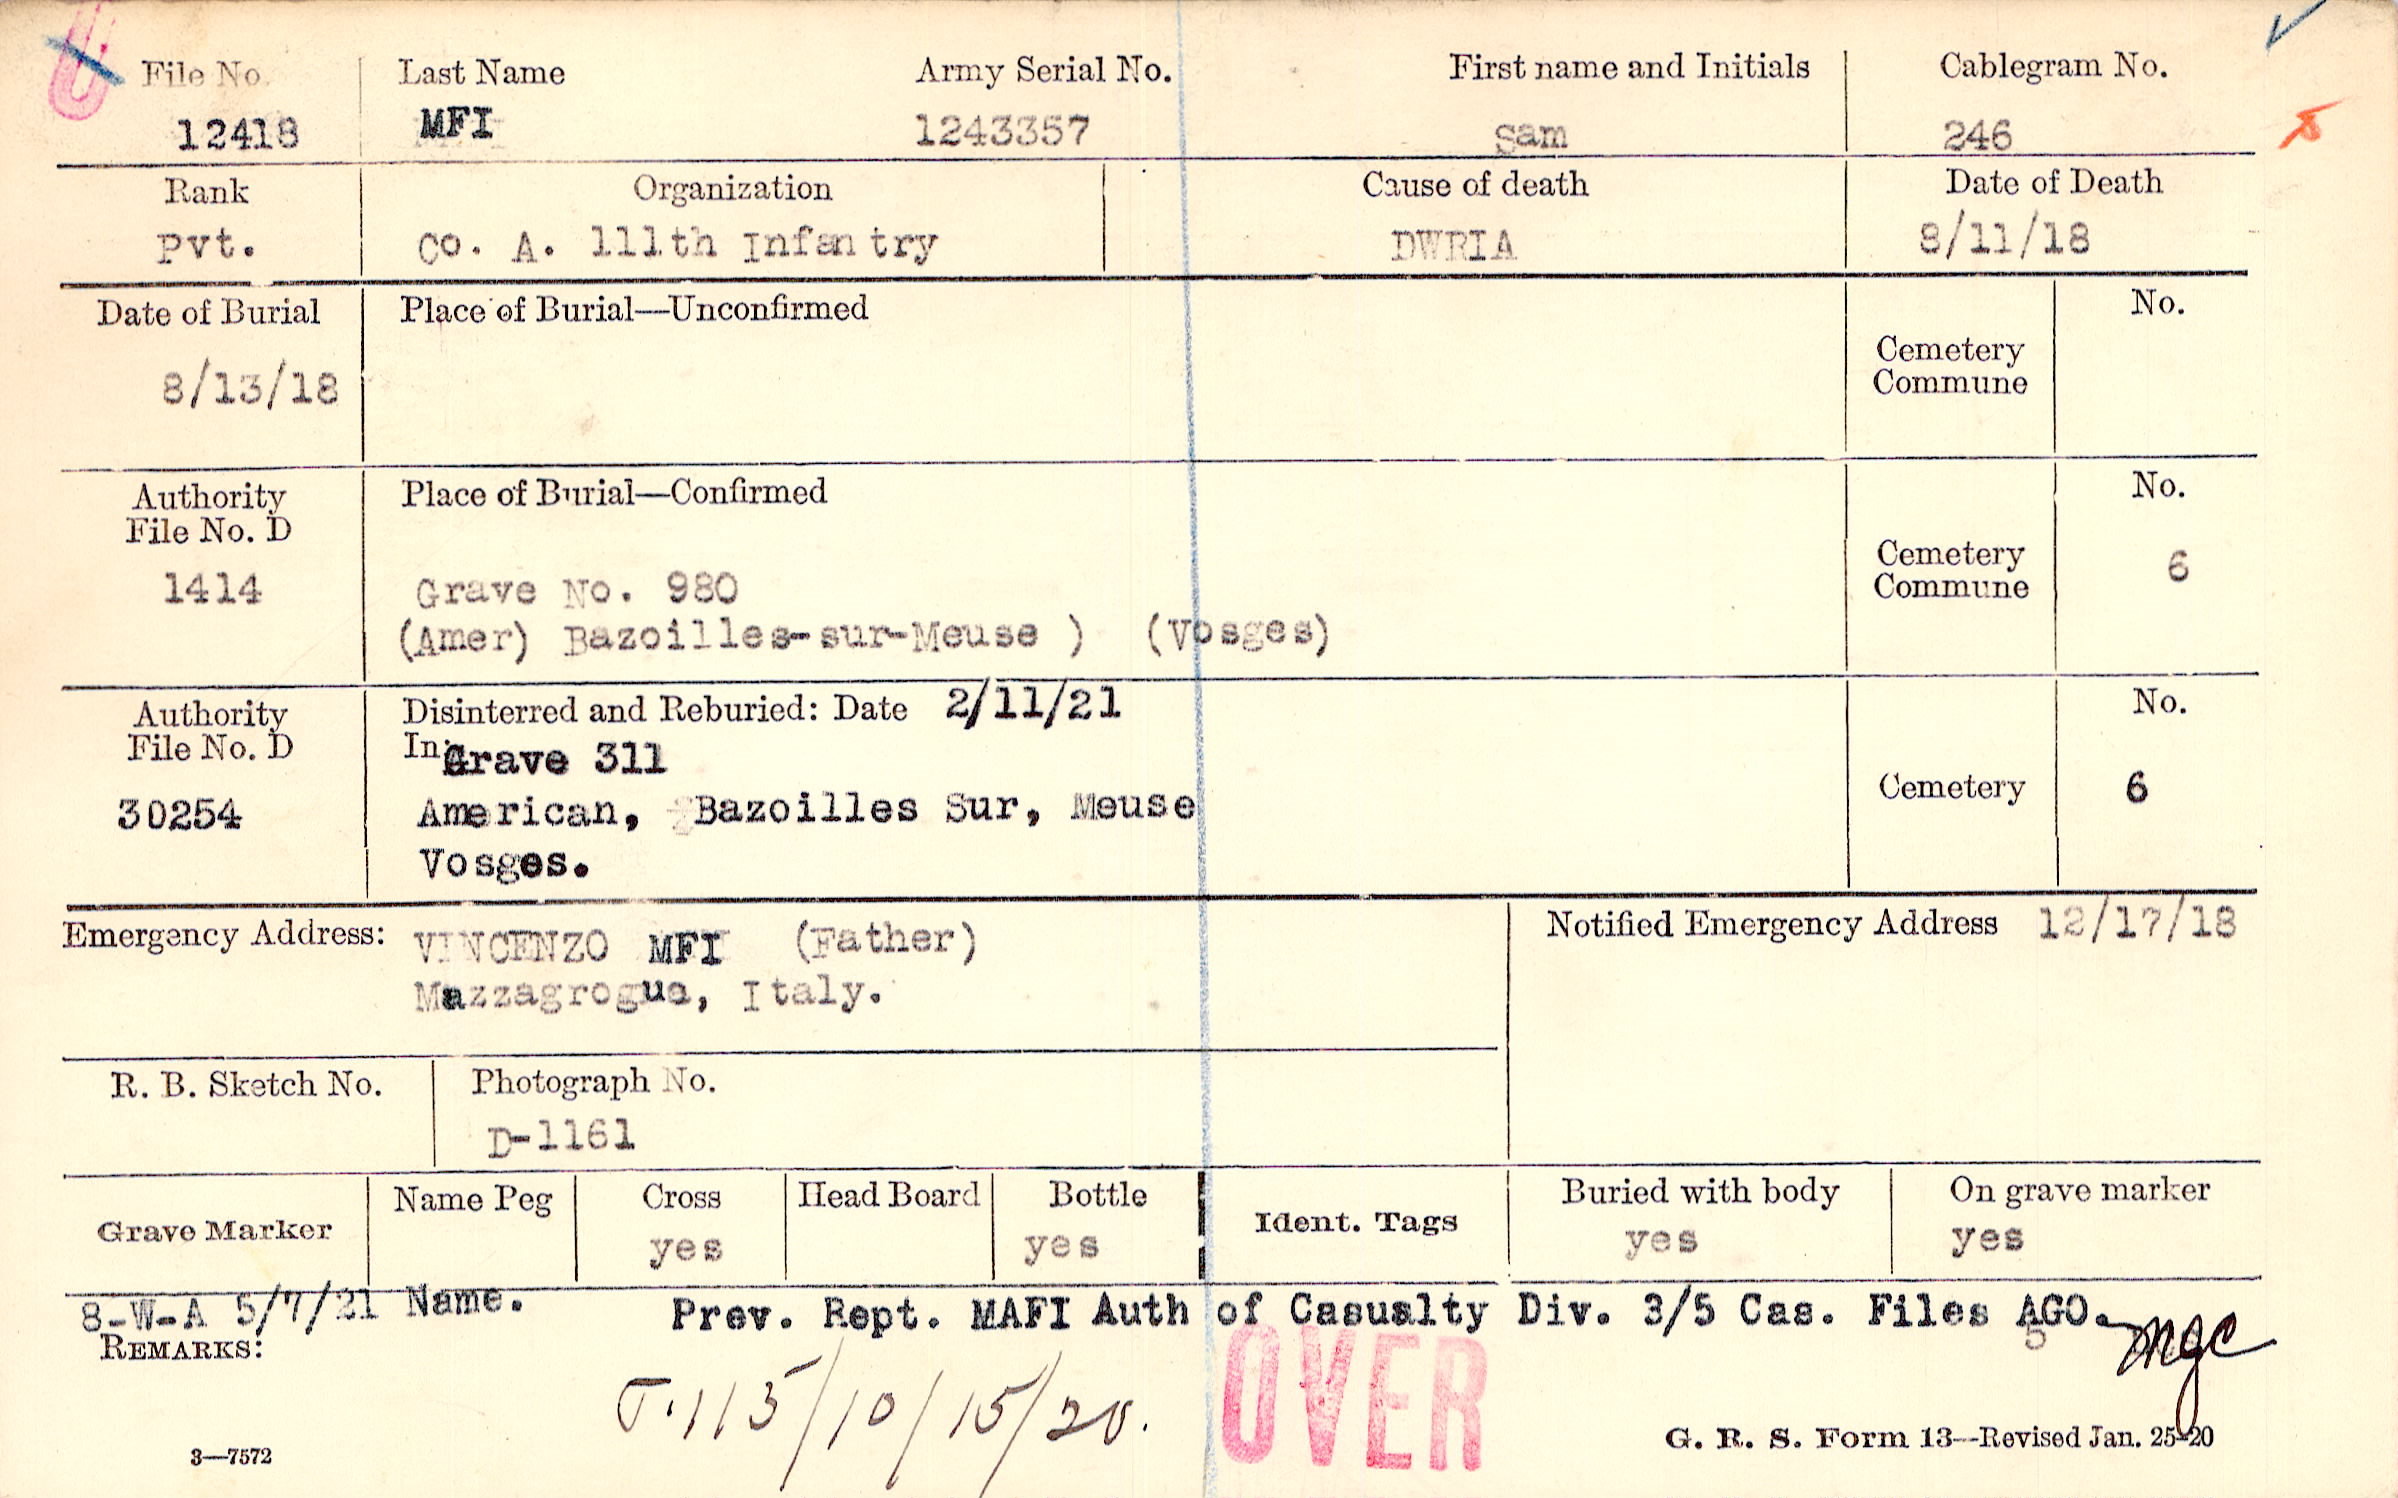 File No. Last Name Army Serial No. First name and Initials Cablegram No.
12418 MFI 1243357 Sam 246
Rank Organization Cause of death Date of Death
Pvt. Co. A. 111th Infantry DWRIA 8/11/18
Date of Burial Place of Burial—Unconfirmed No.
8/13/18 Cemetery
Commune
Authority Place of Burial—Confirmed No.
File No. D
1414 Grave No. 980 Cemetery
Commune 6
(Amer) Bazoilles-sur-Meuse ) (Vosges)
Authority Disinterred and Reburied: Date 2/11/21 No.
File No. D In: Grave 311
30254 American, Bazoilles Sur, Meuse Cemetery 6
Vosges.
Emergency Address: VINCENZO MFI (Father) Notified Emergency Address 12/17/18
Mazzagrogua, Italy.
R. B. Sketch No. Photograph No.
D-1161
Grave Marker Name Peg Cross Head Board Bottle Ident. Tags Buried with body On grave marker
yes yes yes yes
8-W-A 5/7/21 Name. Prev. Rept. MAFI Auth of Casualty Div. 3/5 Cas. Files AGO.
REMARKS: 5 mgc
T.115/10/15/20. OVER
3—7572 G. R. S. Form 13—Revised Jan. 25-20